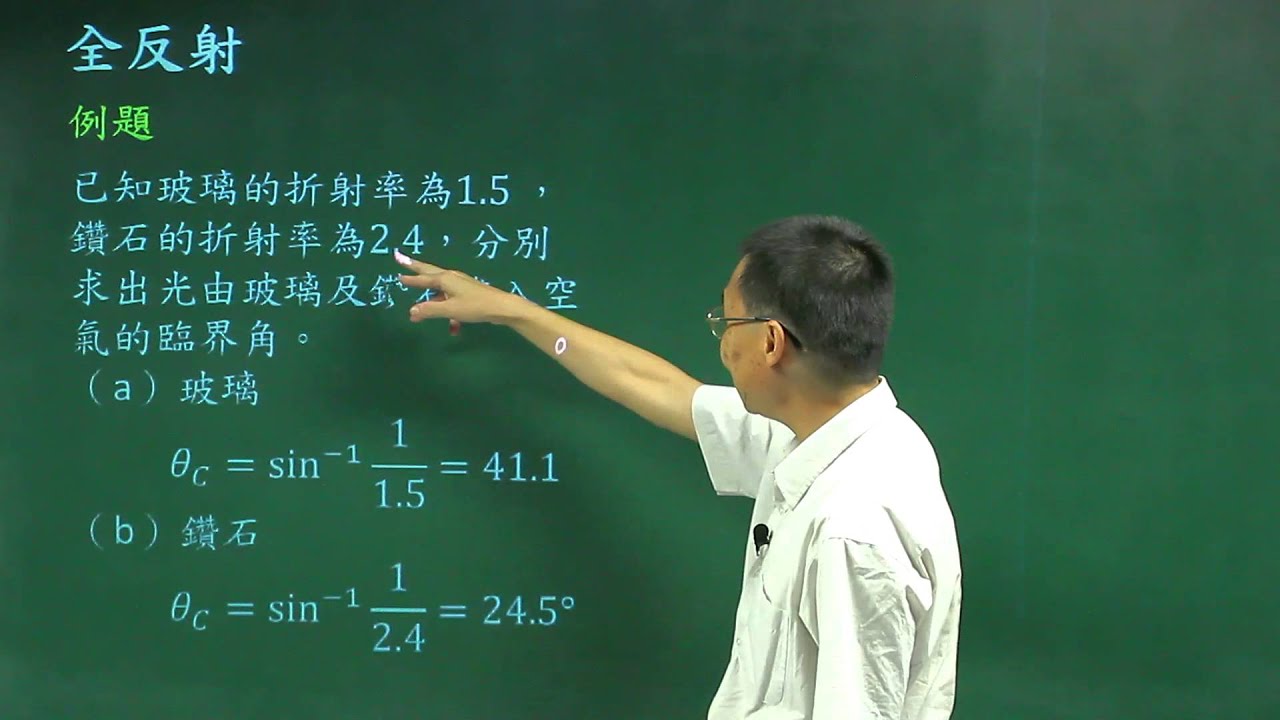 全反射
例題
已知玻璃的折射率為1.5，
鑽石的折射率為2.4，分別
求出光由玻璃及鑽 入空
氣的臨界角。
（a）玻璃
θ_C = sin⁻¹ 1/1.5 = 41.1
（b）鑽石
θ_C = sin⁻¹ 1/2.4 = 24.5°